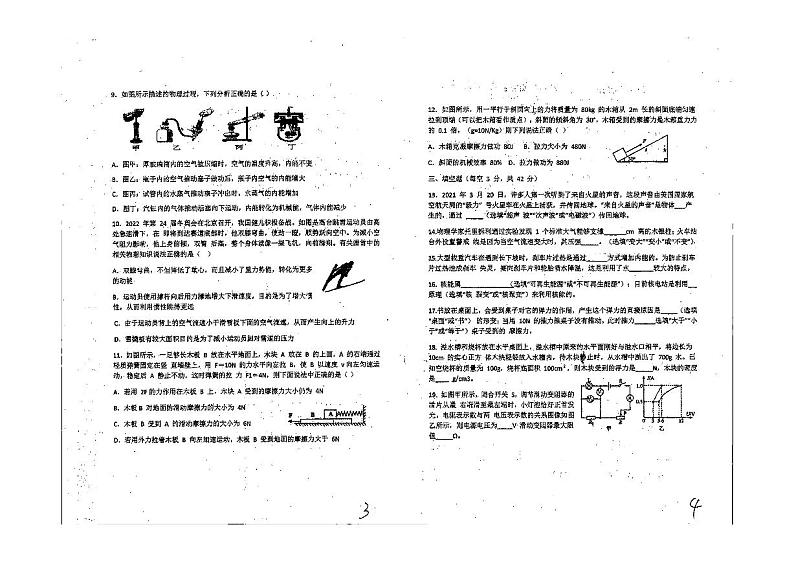 9. 如图所示描述的物理过程，下列分析正确的是（ ）
甲 乙 丙 丁
A. 图甲：厚玻璃筒内的空气被压缩时，空气的温度升高，内能不变
B. 图乙：瓶子内的空气推动塞子做功后，瓶子内空气的内能增大
C. 图丙：试管内的水蒸气推动塞子冲出时，水蒸气的内能增加
D. 图丁：汽缸内的气体推动活塞向下运动，内能转化为机械能，气体内能减少
10. 2022 年第 24 届冬奥会在北京召开，我国健儿积极备战。如图是高台跳雪运动员由高
处急速滑下，在 即将到达赛道底部时，他双膝弯曲，使劲一蹬，顺势跃向空中。为减小空
气阻力影响，他上身前倾，双臂 后摆，整个身体就像一架飞机，向前滑翔。有关滑雪中的
相关物理知识说法正确的是（ ）
A. 双腿弯曲，不但降低了重心，而且减小了重力势能，转化为更多
的动能
B. 运动员使用撑杆向后用力撑地增大下滑速度，目的是为了增大惯
性，从而利用惯性跳得更远
C. 由于运动员背上的空气流速小于滑雪板下面的空气流速，从而产生向上的升力
D. 雪橇板有较大面积目的是为了减小运动员对雪面的压力
11. 如图所示，一足够长木板 B 放在水平地面上，木块 A 放在 B 的上面，A 的右端通过
轻质弹簧固定在竖 直墙壁上，用 F＝10N 的力水平向左拉 B，使 B 以速度 v 向左匀速运
动，稳定后 A 静止不动，这时弹簧的拉 力 F1＝4N，则下面说法中正确的是（ ）
A. 若用 2F 的力作用在木板 B 上，木块 A 受到的摩擦力大小仍为 4N
B. 木板 B 对地面的滑动摩擦力的大小为 4N
C. 木板 B 受到 A 的滑动摩擦力的大小为 6N
D. 若用外力拉着木板 B 向左加速运动，木板 B 受到地面的摩擦力大于 6N
F B A
3
12. 如图所示，用一平行于斜面向上的力将质量为 80kg 的木箱从 2m 长的斜面底端匀速
拉到顶端（可以把木箱看作质点），斜面的倾斜角为 30°，木箱受到的摩擦力是木箱重力
的 0.1 倍，（g=10N/Kg）则下列说法正确（ ）
A. 木箱克服摩擦力做功 80J B. 拉力大小为 480N
C. 斜面的机械效率为 80% D. 拉力做功为 880N
三、填空题（每空 3 分，共 42 分）
13. 2021 年 3 月 20 日，许多人第一次听到了来自火星的声音，这段声音由美国国家航
空航天局的“毅力” 号火星车在火星上捕获，并传回地球。“来自火星的声音”是物体____产
生的，通过____（选填“超声 波”“次声波”或“电磁波”）传回地球。
14.物理学家托里拆利通过实验发现 1 个标准大气能够支撑____cm 高的水银柱；火车站
台外设置警戒 线是因为当空气流速变大时，其压强____。（选填“变大”“变小”或“不变”）。
15.大型载重汽车在遇到长下坡时，刹车片过热是通过____方式增加内能的，为防止刹车
片过热造成刹车 失灵，要向刹车片和轮胎喷水降温，这是利用了水____较大的特点，
16. 核能属____（选填“可再生能源”或“不可再生能源”）；目前核电站是利用____
原理（选填“核 裂变”或“核聚变”）来利用核能的。
17.书放在桌面上，会受到桌子对它的弹力的作用，产生这个弹力的直接原因是____（选填
“桌面”或“书”）的形变；当用 10N 的推力推桌子没有推动，此时推力____选填“大于”“小
于”或“等于”）桌子受到的 摩擦力，
18. 溢水槽和烧杯放在水平桌面上，溢水槽中原来的水平面刚好与溢水口相平，将边长为
10cm 的实心正方 体木块轻轻放入水槽内，待木块静止时，从水槽中溢出了 700g 水，已
知空烧杯的质量为 100g，烧杯底面积 100cm²，则木块受到的浮力是____N，木块的密度
是____ g/cm3。
19. 如图甲所示，闭合开关 S，调节滑动变阻器的
滑片从最 右端滑至最左端时，小灯泡恰好正常发
光，电流表示数与两 电压表示数的关系图像如图
乙所示，则电源电压为____V·滑动变阻器最大阻
值____Ω。
甲 乙
4